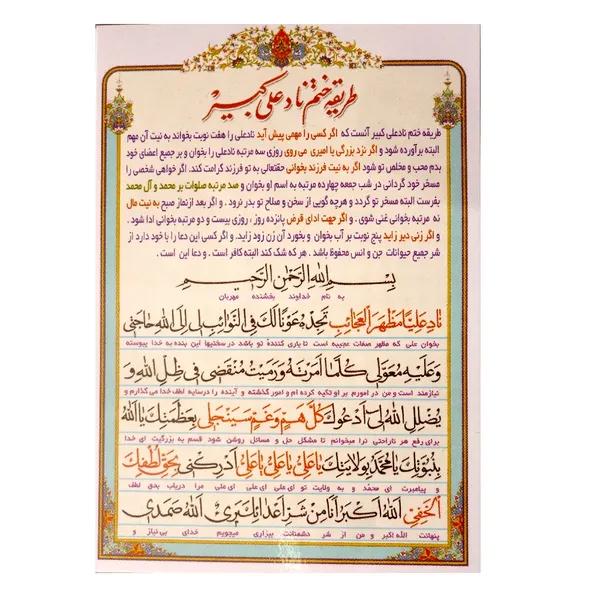 طریقه ختم ناد علی کبیر
طریقه ختم نادعلی کبیر آنست که اگر کسی را مهمی پیش آید نادعلی را هفت نوبت بخواند به نیت آن مهم
البته برآورده شود و اگر نزد بزرگی یا امیری می روی روزی سه مرتبه نادعلی را بخوان و بر جمیع اعضای خود
بدم محب و مخلص تو شود اگر به نیت فرزند بخوانی حقتعالی به تو فرزند کرامت کند. اگر خواهی شخصی را
مسخر خود گردانی در شب جمعه چهارده مرتبه به اسم او بخوان و صد مرتبه صلوات بر محمد و آل محمد
بفرست البته مسخر تو گردد و هرچه گویی از سخن و صلاح تو بدر نرود . و اگر بعد ازنماز صبح به نیت مال
نه مرتبه بخوانی غنی شوی . و اگر جهت ادای قرض پانزده روز ، روزی بیست و دو مرتبه بخوانی ادا شود .
و اگر زنی دیر زاید پنج نوبت بر آب بخوان و بخورد آن زن زود زاید. و اگر کسی این دعا را با خود دارد از
شر جمیع حیوانات جن و انس محفوظ باشد . هر که شک کند البته کافر است . و دعا این است .
بِسْمِ اللهِ الرَّحْمٰنِ الرَّحیمِ
به نام خداوند بخشنده مهربان
نادِ عَلِیّاً مَظْهَرَ الْعَجائِبِ تَجِدْهُ عَوْناً لَكَ فِی النَّوائِبِ لی اِلَی اللهِ حاجَتی
بخوان علی که مظهر صفات عجیبه است تا یاری کنندهٔ تو باشد در سختیها این بنده به خدا پیوسته
وَعَلَیْهِ مُعَوَّلی کُلَّما اَمَرْتَهُ وَرَمَیْتُ مُنْقَضی فی ظِلِّ اللهِ وَ
نیازمند است و من در امورم بر او تکیه کرده ام و امور گذشته و آینده را درسایه لطف خدا می گذارم و
یُضْلِلِ اللهُ لی اَدْعُوكَ کُلَّ هَمٍّ وَغَمٍّ سَیَنْجَلی بِعَظَمَتِكَ یا اَللهُ
برای رفع هر ناراحتی ترا میخوانم تا مشکل حل و مسائل روشن شود قسم به بزرگیت ای خدا
بِنُبُوَّتِكَ یا مُحَمَّدُ بِوِلایَتِكَ یا عَلِیُّ یا عَلِیُّ یا عَلِیُّ اَدْرِکْنی بِحَقِّ لُطْفِكَ
و پیامبرت ای محمّد و به ولایت تو ای علی ای علی ای علی مرا دریاب بحق لطف
الْخَفِیِّ اَللهُ اَکْبَرُ اَنَا مِنْ شَرِّ اَعْدائِكَ بَریءٌ اَللهُ صَمَدی
پنهانت الله اکبر و من از شر دشمنانت بیزاری میجویم خدای بی نیاز و